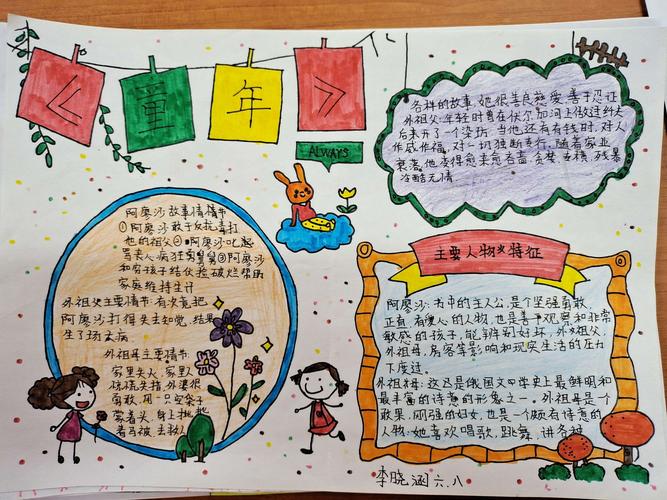 《童年》
ALWAYS
各样的故事,她很善良慈爱,善于忍让
外祖父:年轻时曾在伏尔加河上做过纤夫
后来开了一个染坊,当他还有有钱时,对人
作威作福,对一切独断专行,随着家业
衰落,他变得愈来愈吝啬,贪婪,专横,残暴
冷酷无情
阿廖沙故事情情节
①阿廖沙敢于反抗毒打
他的祖父②阿廖沙吃起
阿廖沙
和穷孩子结伙捡破烂帮助
家庭维持生计
外祖父主要情节:有次竟把
阿廖沙打得失去知觉,结果
生了场大病
外祖母主要情节:
家里失火,家里人
惊慌失措,外婆很
勇敢,用一只空袋子
蒙着头,身上批
着马被,去救人
主要人物及特征
阿廖沙:书中的主人公,是个坚强勇敢,
正直,有爱心的人物,也是善于观察和非常
敏感的孩子,能辨别好坏,外义祖父,
外祖母,房客等影响和现实生活的压力
下度过。
外祖母:这乃是俄国文学史上最鲜明和
最丰富的诗意的形象之一。外祖母是个
果,刚强的妇女,也是一个颇有诗意的
人物:她喜欢唱歌,跳舞,讲各种
李晓涵六.八